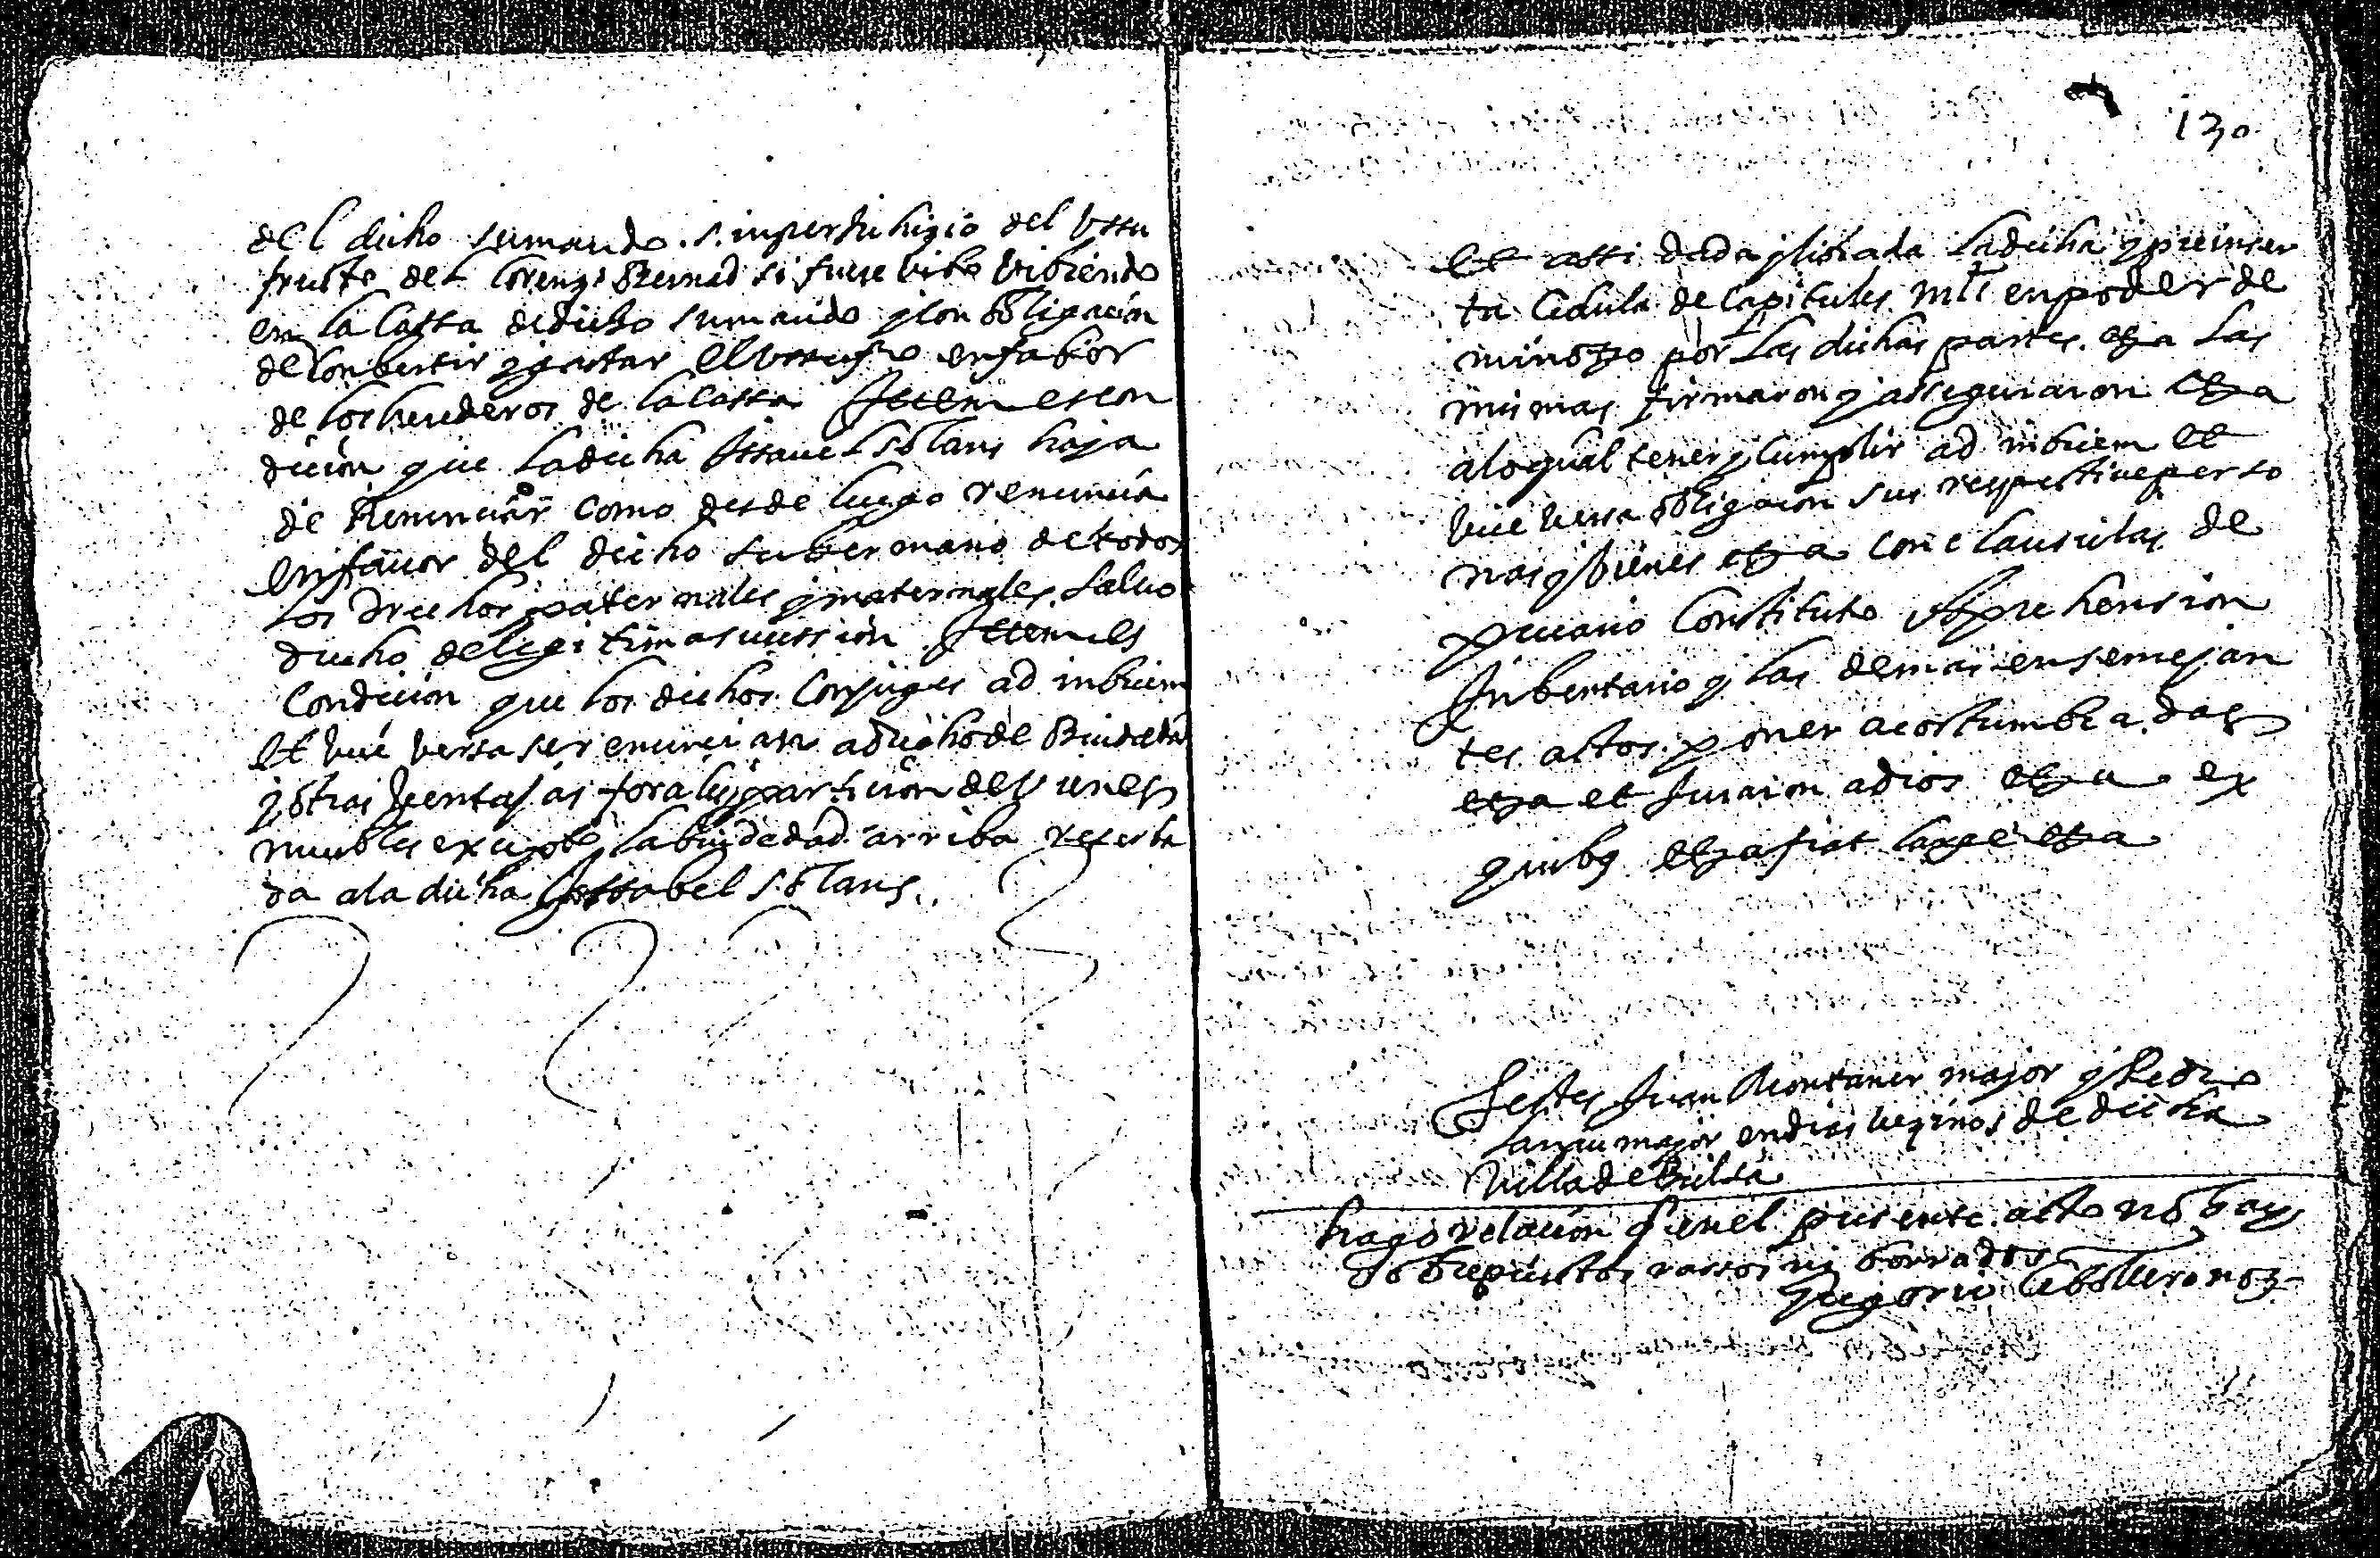 del dicho su marido sin perjuhizio del vssu
fructo del Lorenzo Bernad si fuere vibo vibiendo
en la cassa de dicho su marido y con obligacion
de conbertir y gastar el vssufro en fabor
de los herederos de la cassa Ittem es con
dicion que la dicha Issauel Solans haja
de Renunciar como desde luego renuncia
en fauor del dicho su hermano de todos
los drechos paternales y maternales salbo
drecho de ligitima sucission Ittem es
condicion que los dichos conjuges ad inbicem
et vice versa se renuncian a drecho de Biudedad
y otras bentajas forales y particion de vienes
muebles excepto la biudedad arriba reserba
da a la dicha Issabel Solans
130
Et assi dada y librada la dicha y preinser
ta cedula de capitules mtri en poder de
mi notto por las dichas partes etza las
mismas firmaron y asseguraron etza
a lo qual tener y cumplir ad inbicem et
vice versa obligaron sus respectiue perso
nas y bienes etza con clausulas de
precario constituto aprehension
Inbentario y las demas en semejan
tes actos poner acostumbradas
etza et juraron a dios etza ex
quibus etza fiat large etza
Testes Juan Montaner major y Pedro
major en dias vezinos de dicha
villa de Bielsa
hago relacion q en el presente acto no hay
sobrepuestos rassos ni borrados
Gregorio Cebollero not